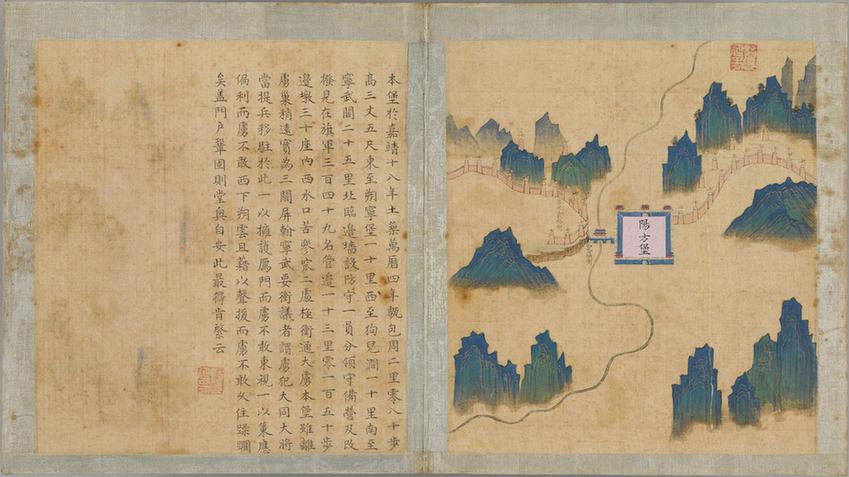 本堡於嘉靖十八年土築萬曆四年甎包周二里零八十步
高三丈五尺東至朔寧堡一十里西至狗兒澗一十里南至
寧武關二十五里北臨邊墻設防守一員分領守備營及改
撥見在旗軍三百四十九名管邊一十三里零一百五十步
邊墩三十座內西水口苦參窊二處極衝通大虜本堡雖離
虜巢稍遠實為三關屏翰寧武要衝議者謂虜犯大同大將
當提兵移駐於此一以擁護鴈門而虜不敢東視一以策應
偏利而虜不敢西下朔雲且藉以聲援而虜不敢久住蹂躪
矣蓋門戶鞏固則堂奧自安此最得肯綮云
陽方堡